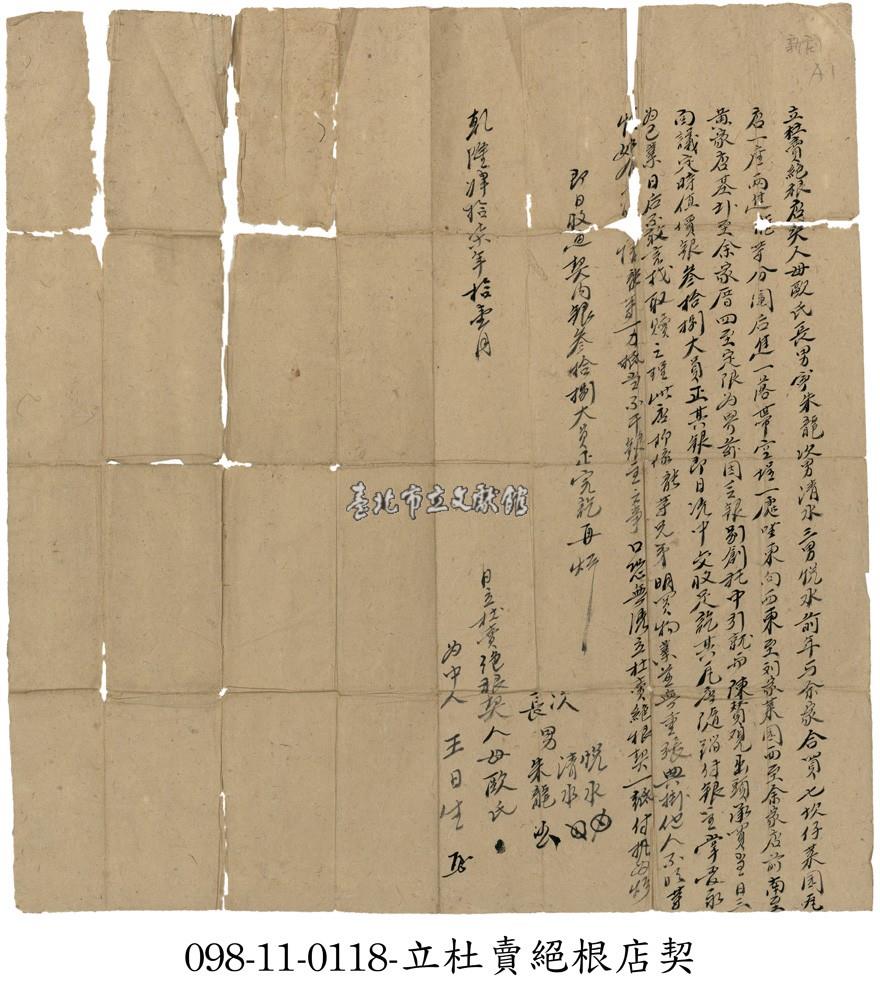 新店
A1
立杜賣絕根店契人母歐氏長男字朱龍次男清水三男悅水前年与余家合買七坎仔菜園瓦
店一座兩進龍等分闔后進一落帶空埕一處坐東向西東至刘家菜園西至余家店前南至
黃家店基北至余家厝四至定限為界前因乏銀別創托中引就与陳贊观出頭承買當日三
面議定時值價銀叁拾捌大員正其銀即日仝中交收足訖其瓦店隨踏付銀主掌管永
為己業日后不敢言找取贖之理此店抑係龍等兄弟明買物業並無重張典掛他人不明等
情如有 情龍等一力抵當不干銀主之事口恐無憑立杜賣絕根契一紙付执為炤
即日收过契内銀叁拾捌大員正完訖再炤
乾隆肆拾 年拾壹月
次 悅水
男 清水
長 朱龍
日立杜賣絕根契人母歐氏
為中人 王日生
臺北市立文獻館
098-11-0118-立杜賣絕根店契